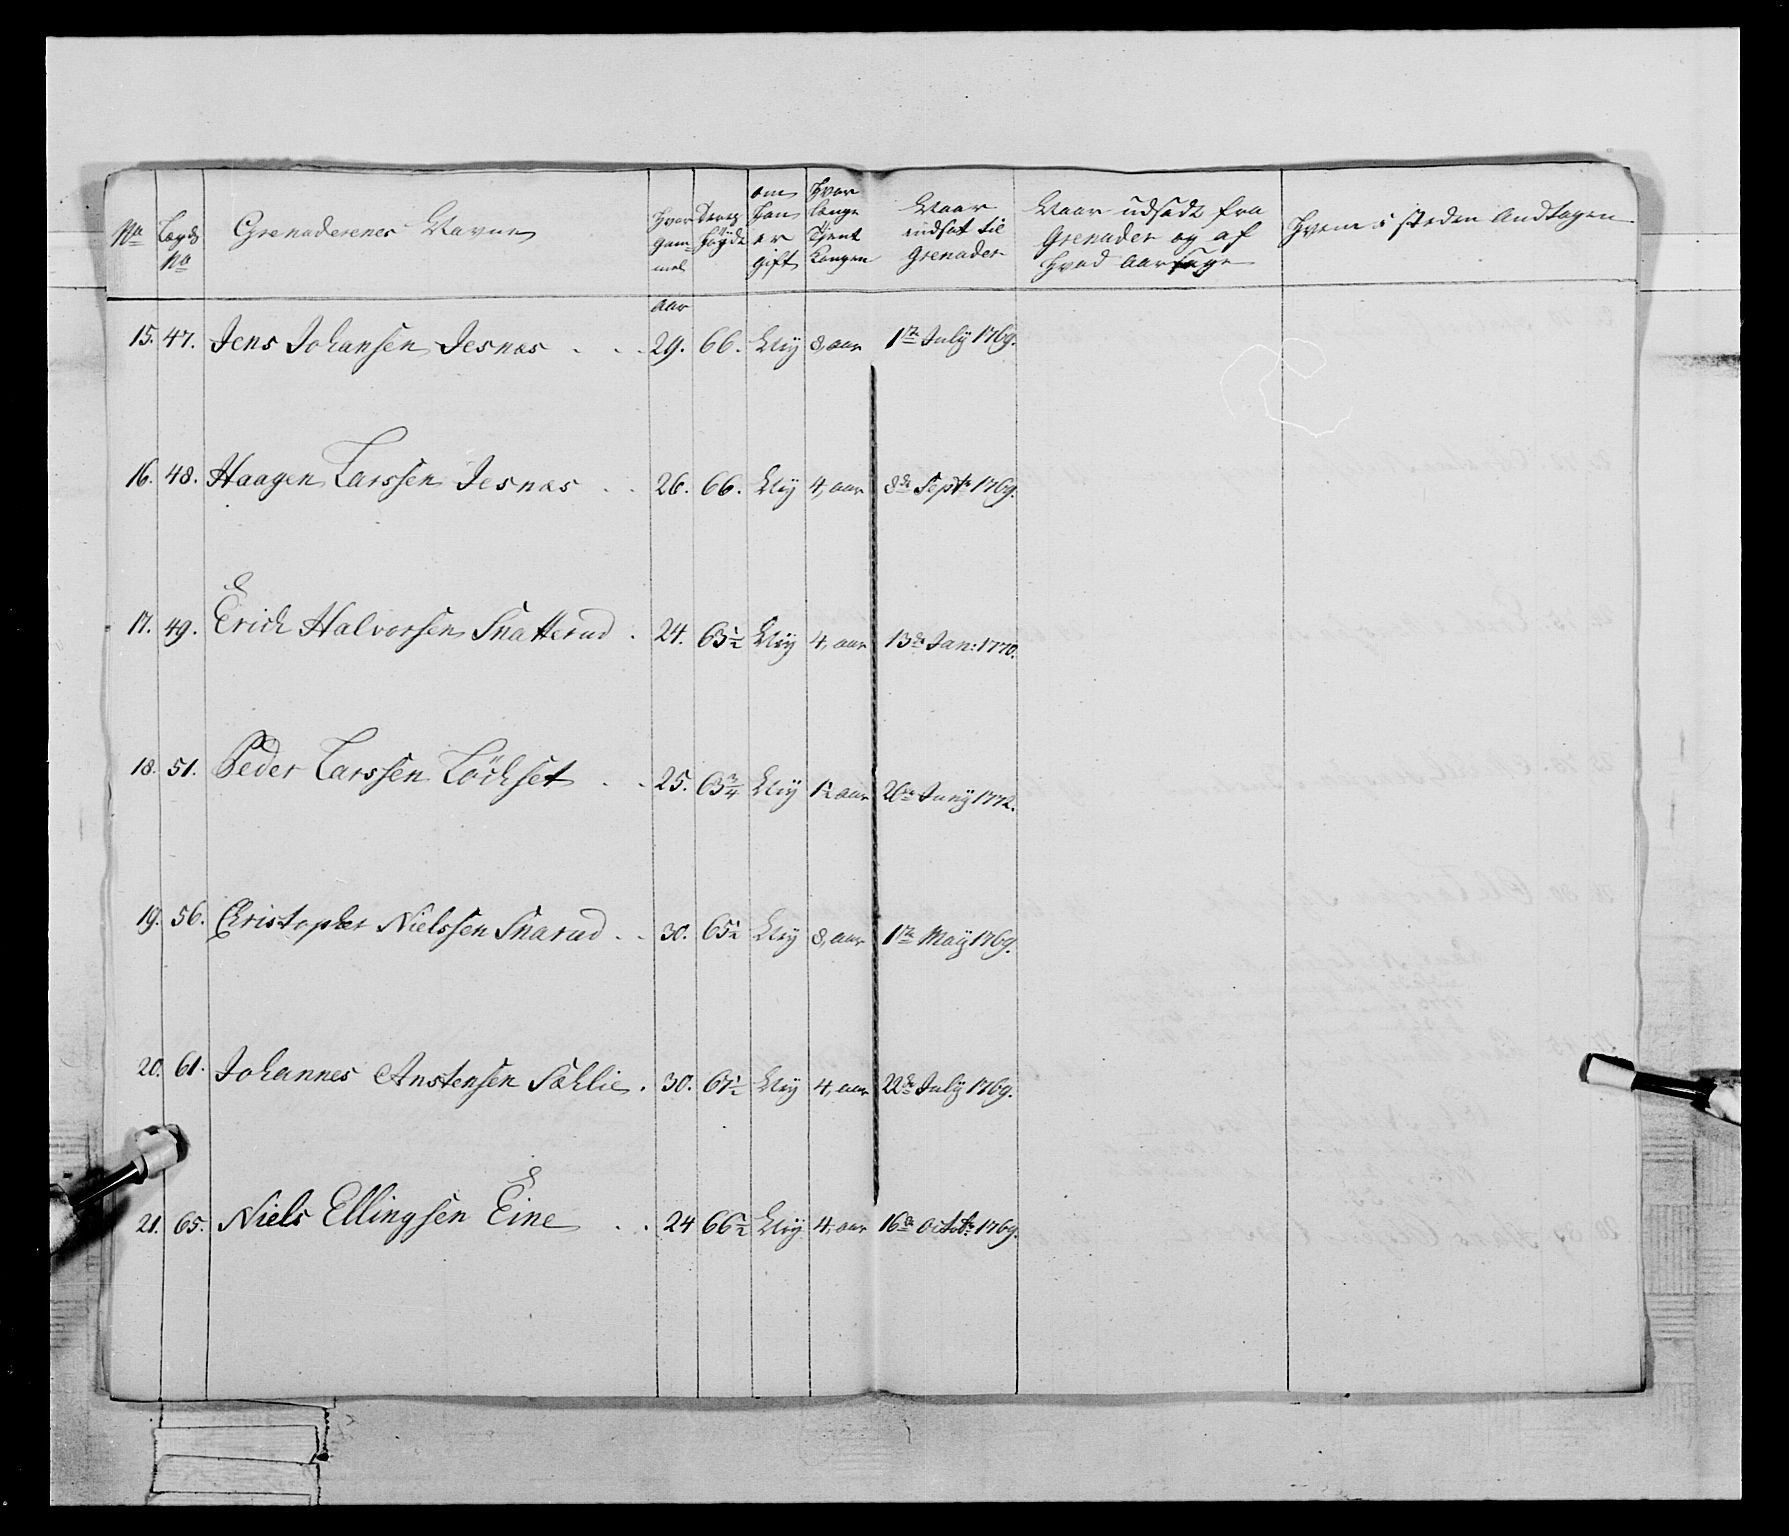 No
Lægds No
Grenaderenes Navne
Hvor gam= mel
Deres Høyde
om han er gift
Hvor længe Tjent Kongen
Naar indsat til Grenader
Naar udsadt fra Grenader og af hvad aarsage
Hvem i steden Andtagen
aar
15. 47. Jens Johansen Jesnæs . . . 29. 66. Neÿ 8, aar 1te Julÿ 1769.
16. 48. Haagen Larssen Jesnæs . . 26. 66. Neÿ 4, aar 8de Septr 1769.
17. 49. Erich Halvorsen Snatterud . 24. 63½ Neÿ 4, aar 13de Jan: 1770.
18. 51. Peder Larssen Löchset . . 25. 63¾ Neÿ 1½ aar 26de Junÿ 1772.
19. 56. Christopher Nielssen Snarud . . 30. 65½ Neÿ 8, aar 1te Maÿ 1769.
20. 61. Johannes Anstensen Sæhlie . 30. 67½ Neÿ 4, aar 22de Julÿ 1769.
21. 65. Niels Ellingsen Eine . . 24 66½ Neÿ 4, aar 16de Octobr 1769.